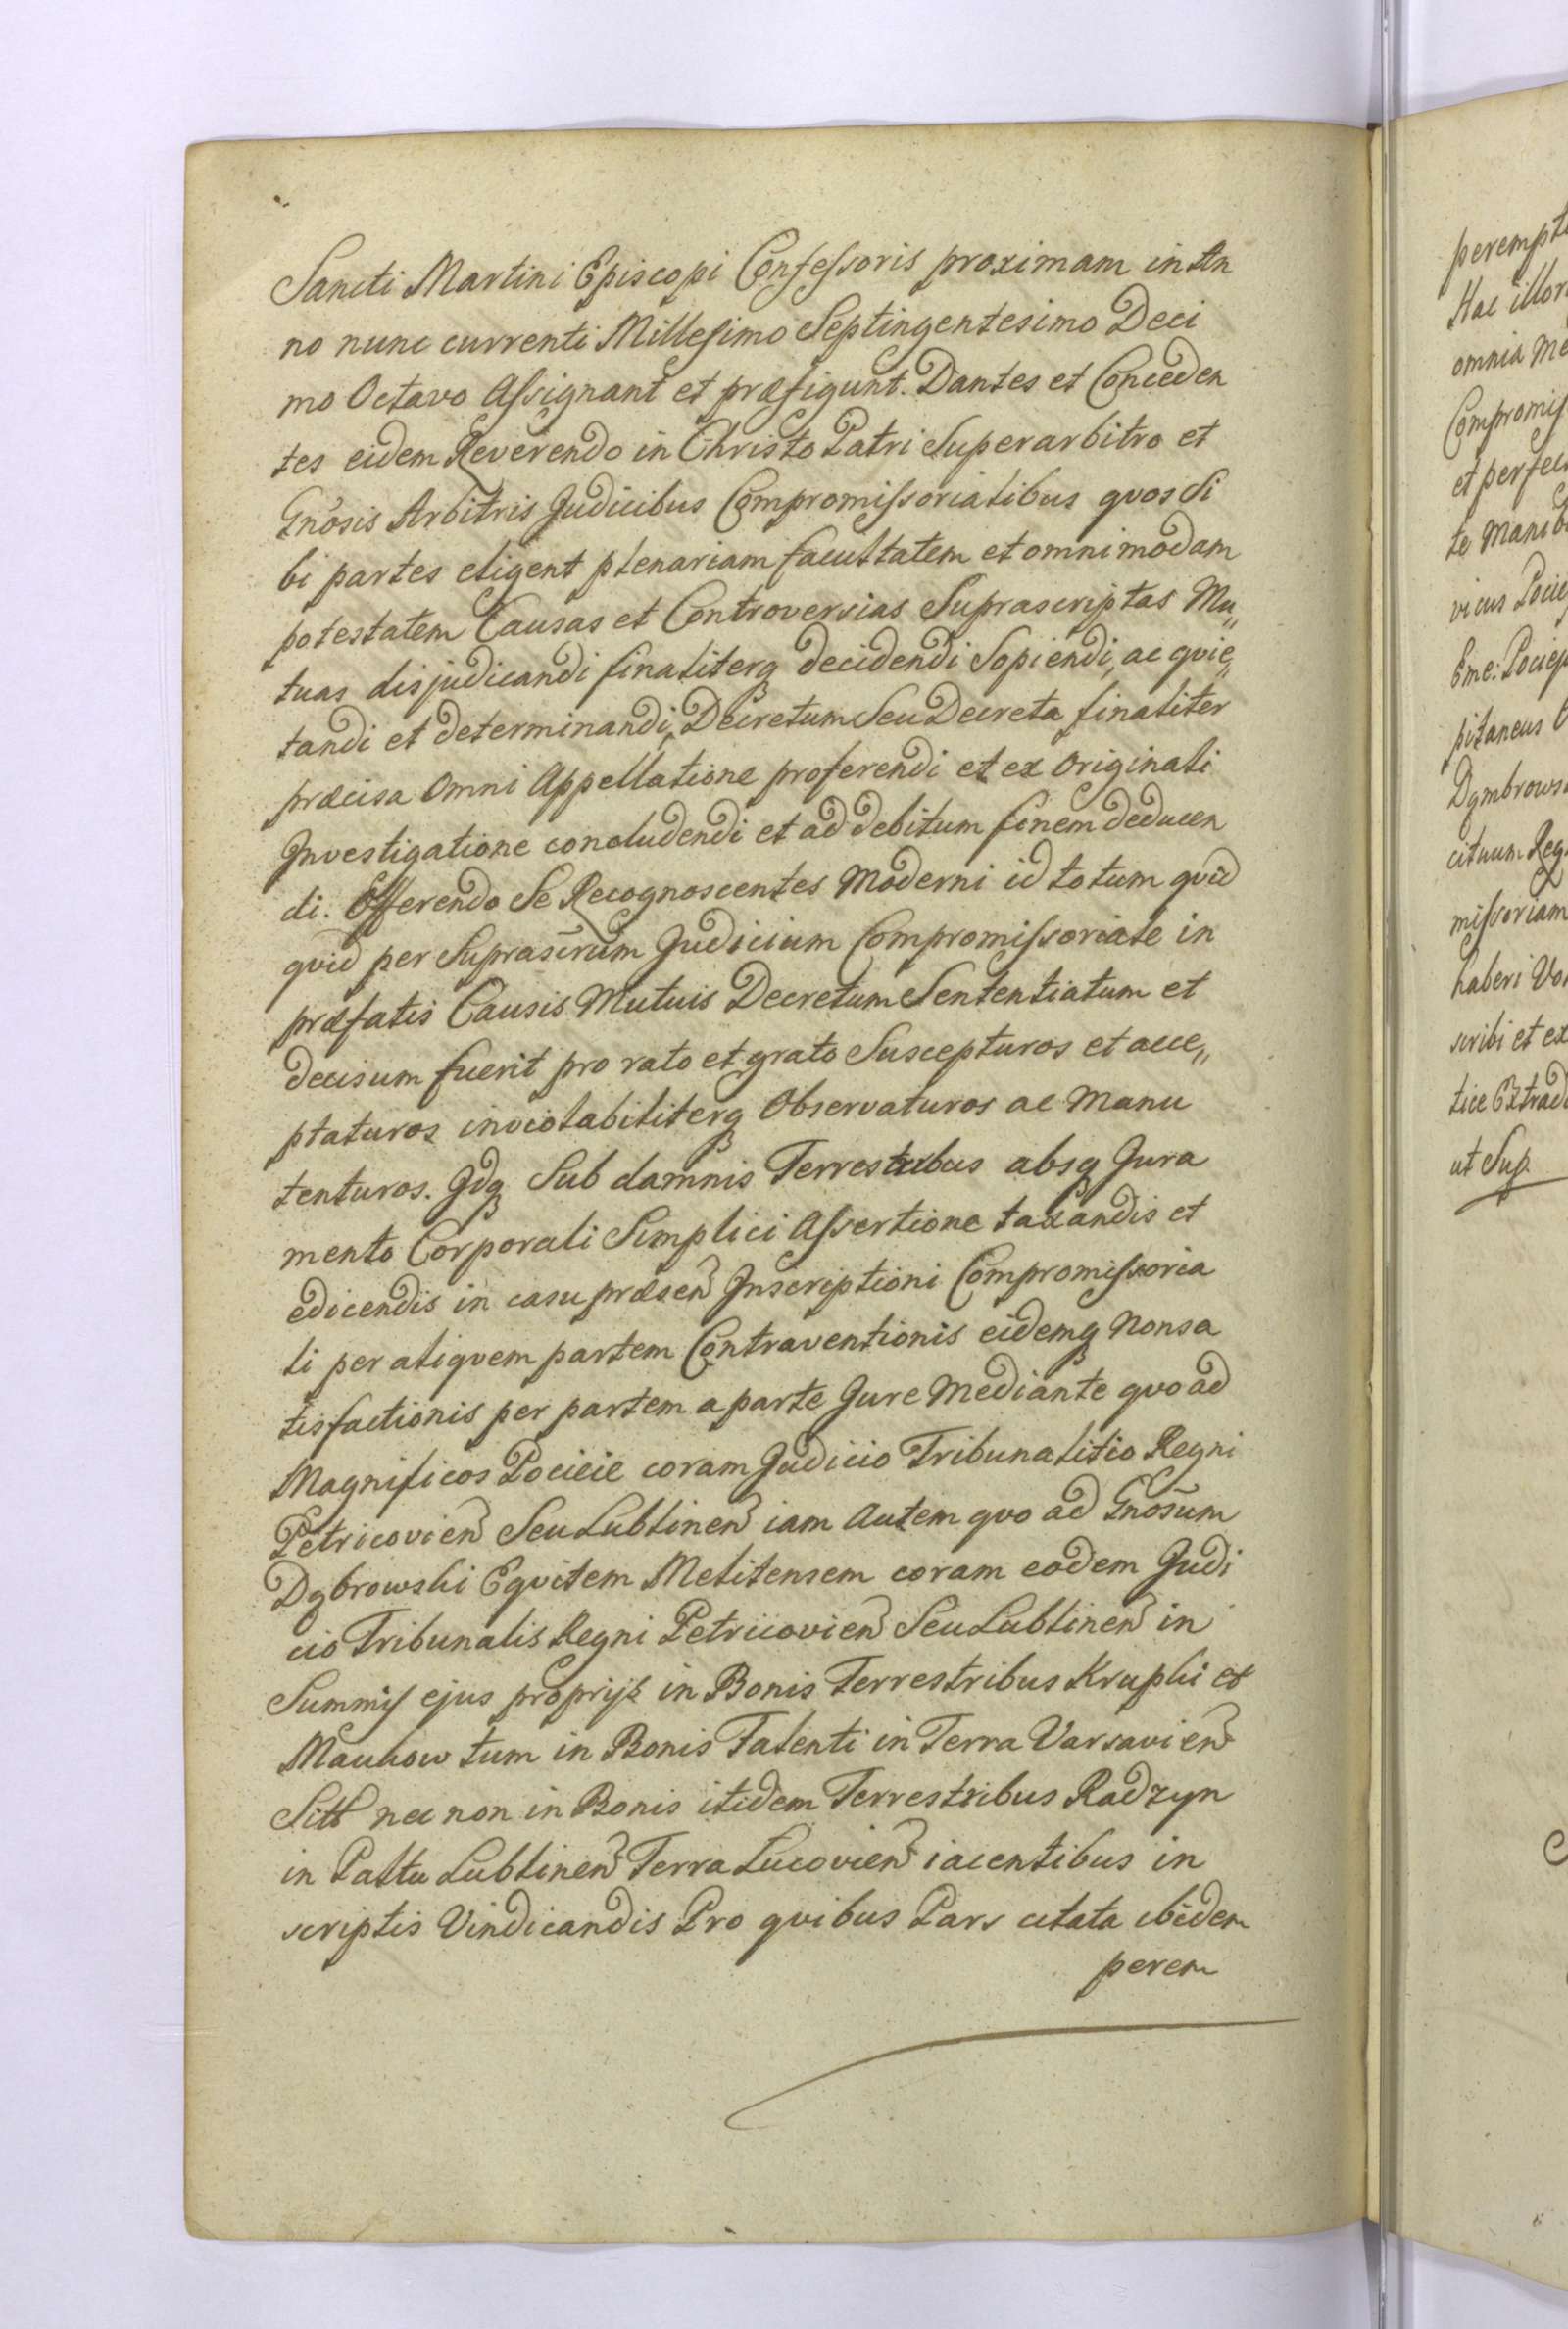 Sancti Martini Episcopi Confessoris proximam in An
no nunc currenti Millesimo Septingentesimo Deci
mo Octavo Assignant et præfigunt. Dantes et Conceden
tes eidem Reverendo in Christo Patri Superarbitro et
Gnõsis Arbitris Judicibus Compromissorialibus qvos Si
bi partes eligent plenariam facultatem et omnimodam
potestatem Causas et Controversias Suprascriptas Mu„
tuas disjudicandi finaliterq decidendi Sopiendi, ac qvie„
tandi et determinandi, Decretum Seu Decreta finaliter
præcisa Omni Appellatione proferendi et ex Originali
Investigatione concludendi et ad debitum finem deducen
di. Offerendo Se Recognoscentes Moderni id totum qvid
qvid per Suprascrũm Judicium Compromissoriale in
præfatis Causis Mutuis Decretum Sententiatum et
decisum fuerit pro rato et grato Suscepturos et acce„
ptaturos inviolabiliterq Observaturos ac Manu
tenturos. Idq Sub damnis Terrestribus absq Jura
mento Corporali Simplici Assertione taxandis et
edicendis in casu præsen Inscriptioni Compromissoria
li per aliqvem partem Contraventionis eidemq Nonsa
tisfactionis per partem a parte Jure Mediante qvo ad
Magnificos Pocieie coram Judicio Tribunalitio Regni
Petricovien Seu Lublinen iam Autem qvo ad Gnõsum
Dąbrowski Eqvitem Melitensem coram eodem Judi
cio Tribunalis Regni Petricovien Seu Lublinen in
Summis ejus proprijs in Bonis Terrestribus Krupki et
tum in Bonis Falenti in Terra Varsavien
Sitt nec non in Bonis itidem Terrestribus Radzyn
in Paltu Lublinen Terra Lucovien iacentibus in
scriptis Vindicandis Pro qvibus Pars citata ibidem
perem
perempt
Hac illor
omnia Me
Compromiss
et perfec
te Manib
vicus Pocie
Eme: Pociej
pitaneus
Dąmbrows
cituum Reg
missoriam
haberi Vo
scribi et ex
tice Extrad
ut Sup.